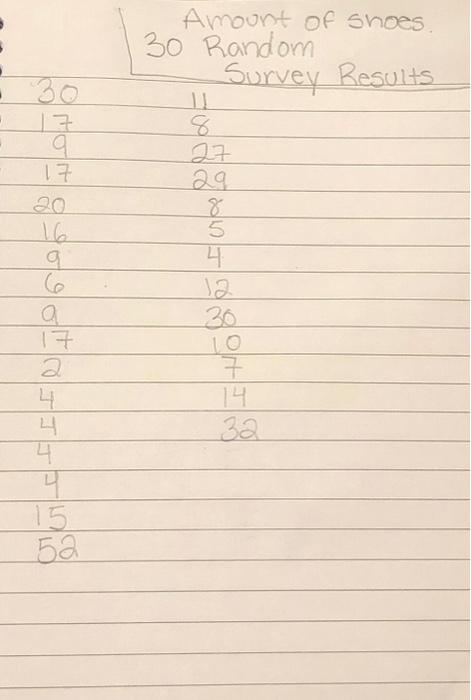 Amount of shoes.
30 Random
Survey Results
30
17
9
17
20
16
9
6
9
17
2
4
4
4
4
15
52
11
8
27
29
8
5
4
12
30
10
7
14
32